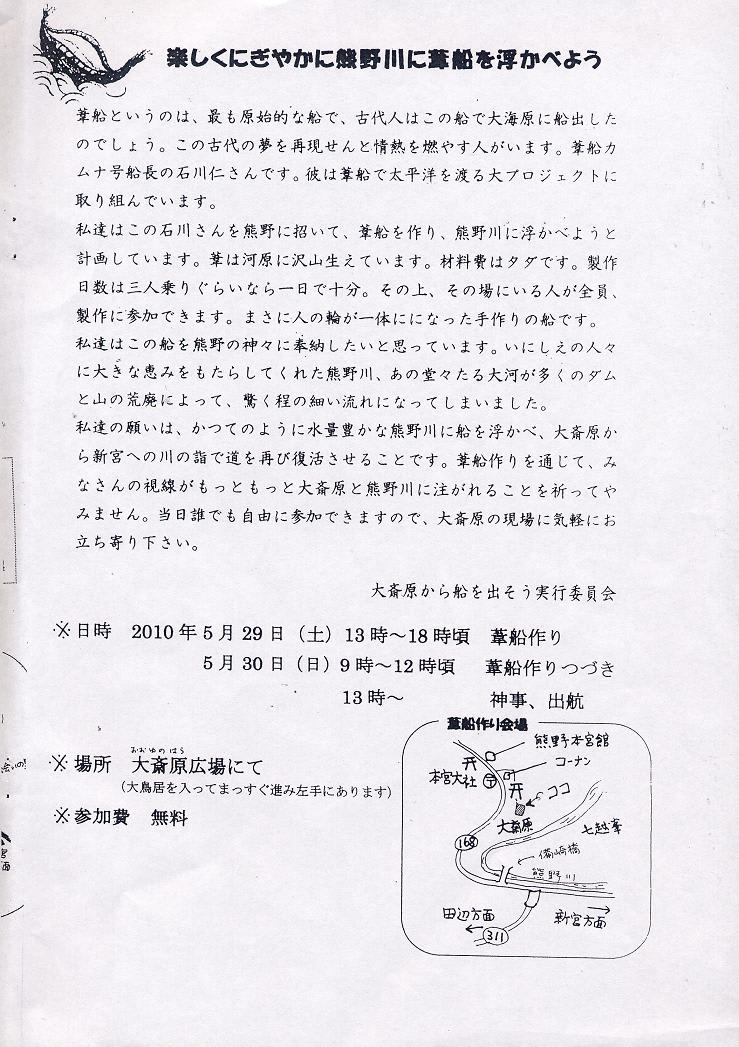 楽しくにぎやかに熊野川に葦船を浮かべよう
葦船というのは、最も原始的な船で、古代人はこの船で大海原に船出した
のでしょう。この古代の夢を再現せんと情熱を燃やす人がいます。葦船カ
ムナ号船長の石川仁さんです。彼は葦船で太平洋を渡る大プロジェクトに
取り組んでいます。
私達はこの石川さんを熊野に招いて、葦船を作り、熊野川に浮かべようと
計画しています。葦は河原に沢山生えています。材料費はタダです。製作
日数は三人乗りぐらいなら一日で十分。その上、その場にいる人が全員、
製作に参加できます。まさに人の輪が一体にになった手作りの船です。
私達はこの船を熊野の神々に奉納したいと思っています。いにしえの人々
に大きな恵みをもたらしてくれた熊野川、あの堂々たる大河が多くのダム
と山の荒廃によって、驚く程の細い流れになってしまいました。
私達の願いは、かつてのように水量豊かな熊野川に船を浮かべ、大斎原か
ら新宮への川の詣で道を再び復活させることです。葦船作りを通じて、み
なさんの視線がもっともっと大斎原と熊野川に注がれることを祈ってや
みません。当日誰でも自由に参加できますので、大斎原の現場に気軽にお
立ち寄り下さい。
大斎原から船を出そう実行委員会
※日時 2010年5月29日（土）13時～18時頃 葦船作り
5月30日（日）9時～12時頃 葦船作りつづき
13時～ 神事、出航
※場所 大斎原広場にて
おおゆのはら
（大鳥居を入ってまっすぐ進み左手にあります）
※参加費 無料
葦船作り会場
熊野本宮館
コーナン
本宮大社
ココ
大斎原
七越峯
168
備崎橋
熊野川
田辺方面
新宮方面
311